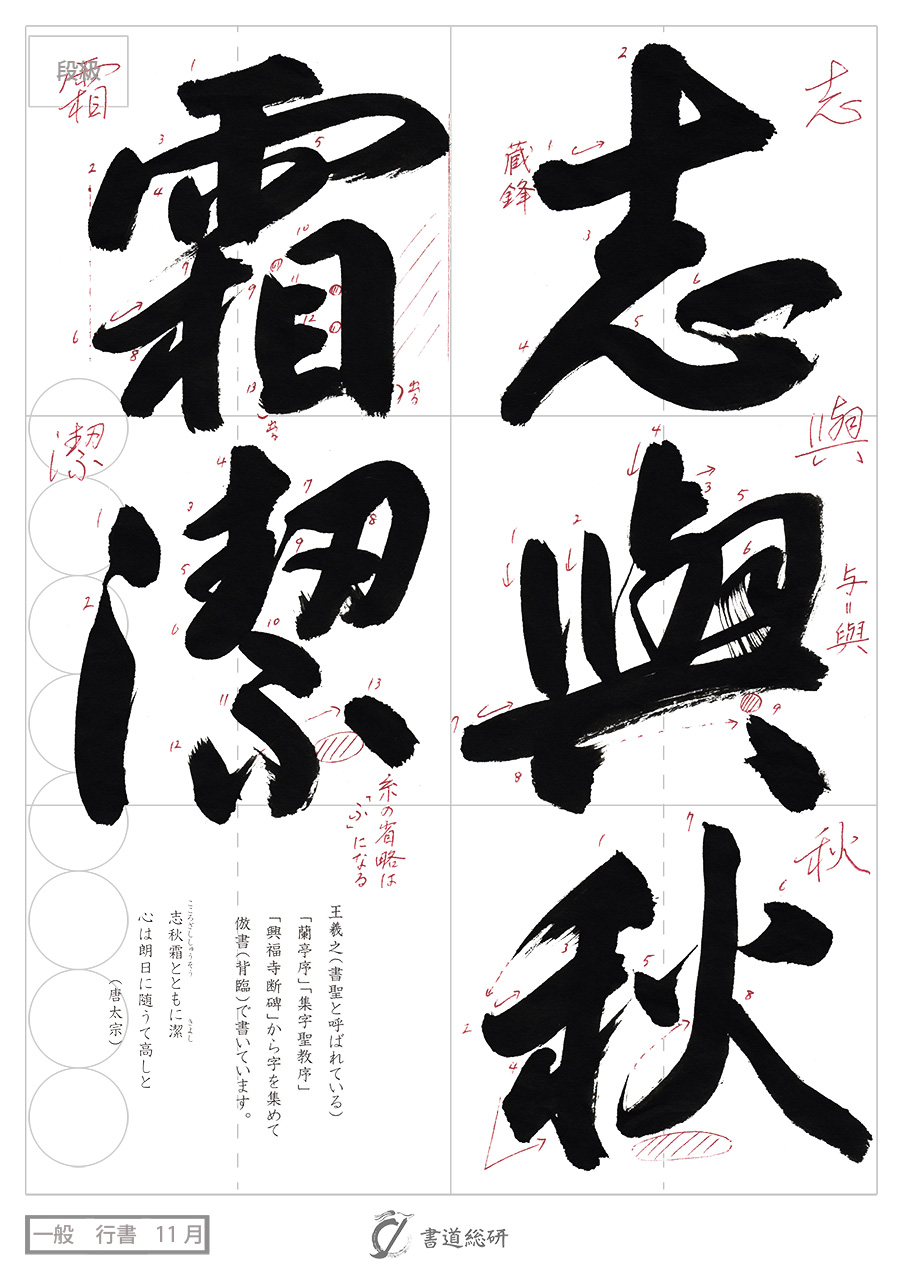 志
與
秋
霜
潔
志
蔵鋒
與
与=與
秋
段級
霜
潔
糸の省略は
「ふ」になる
王羲之(書聖と呼ばれている)
「蘭亭序」「集字聖教序」
「興福寺断碑」から字を集めて
倣書(背臨)で書いています。
こころざししゅうそう きよし
志秋霜とともに潔
心は朗日に随うて高しと
(唐太宗)
一般 行書 11月
書道総研